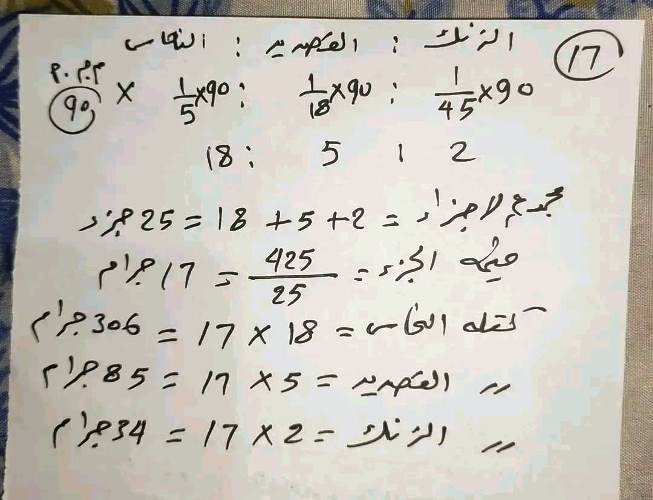 17
الزنك : القصدير : النحاس
1/45 × 90 : 1/18 × 90 : 1/5 × 90 × 90 م.م.م
2 : 5 : 18
مجموع الاجزاء = 2 + 5 + 18 = 25 جزء
قيمة الجزء = 425/25 = 17 جرام
كتلة النحاس = 18 × 17 = 306 جرام
〃 القصدير = 5 × 17 = 85 جرام
〃 الزنك = 2 × 17 = 34 جرام